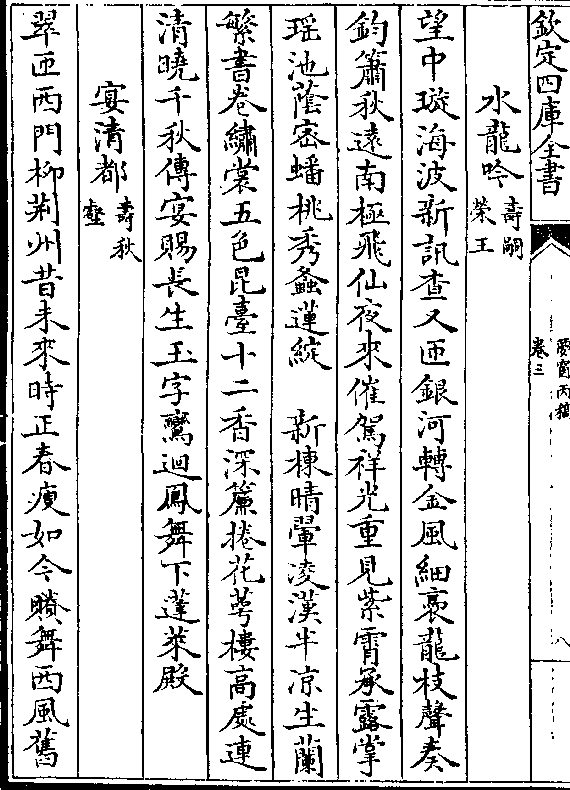 欽定四庫全書
夢窗丙稿
卷三
水龍吟壽嗣榮王
望中璇海波新訊查又匝銀河轉金風細裊龍枝聲奏
鈞簫秋遠南極飛仙夜來催駕祥光重見紫霄承露掌
瑶池蔭宻蟠桃秀螽蓮綻　新棟晴翬凌漢半凉生蘭
繁書卷繡裳五色昆臺十二香深簾捲花萼樓高處連
清曉千秋傳宴賜長生玉字鸞迴鳳舞下蓬萊殿
宴清都壽秋壑
翠匝西門柳荆州昔未來時正春瘦如今賸舞西風舊